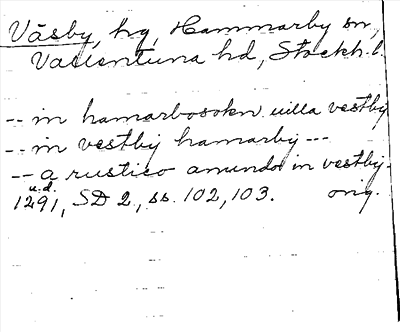 Väsby, hg, Hammarby sn,
Vallentuna hd, Stockh. l.
-- in hamarbosokn uilla vestby
-- in vestbij hamarby ---
-- a rustico amundo in vestby-
u.d.
1291, SD 2, ss. 102, 103. orig.